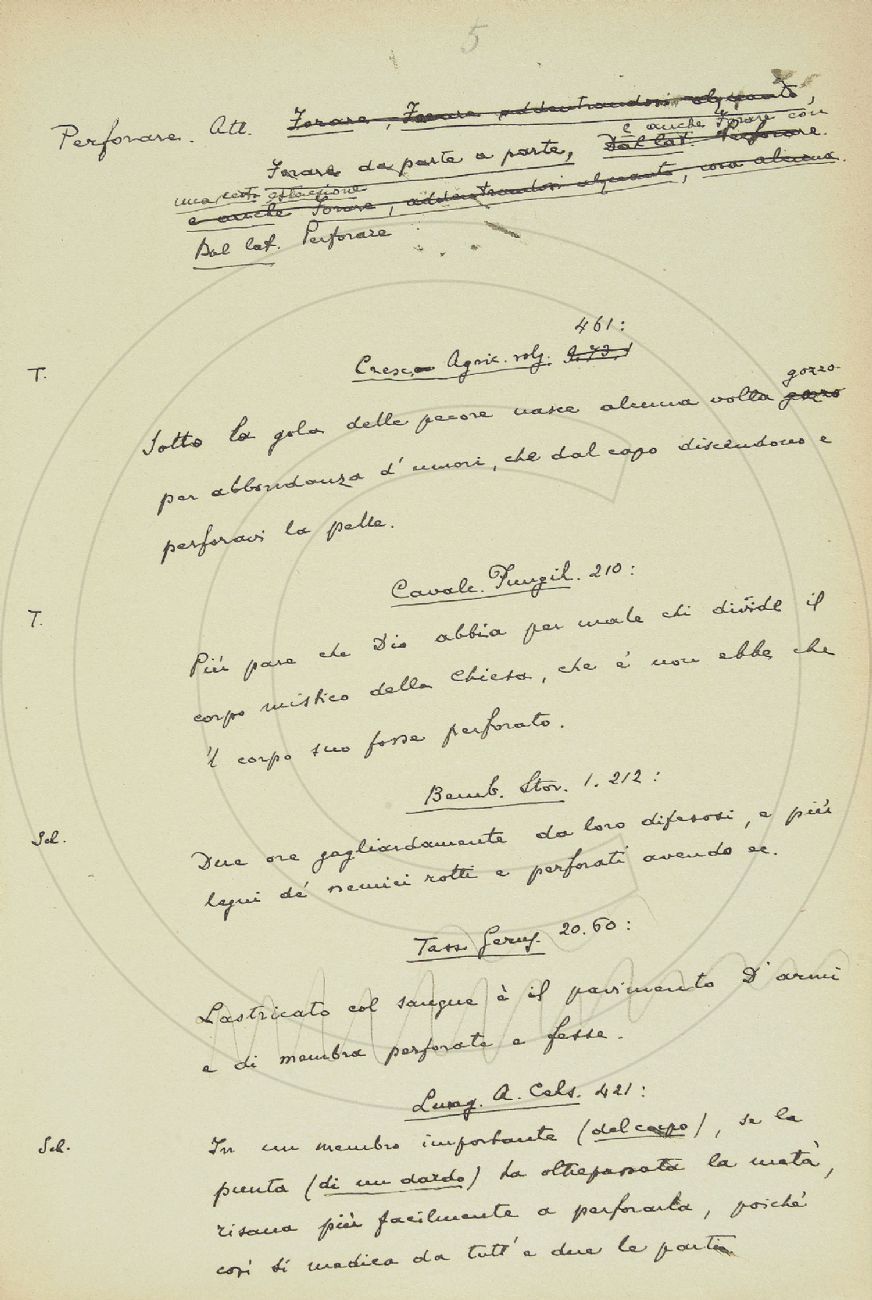 5
Perforare. Att. Forare, Forare addentrandosi alquanto,
e anche Forare con
Forare da parte a parte, Dal lat. Perforare.
una certa estensione
e anche Forare, addentrandosi alquanto, cosa alcuna.
Dal lat. Perforare
461:
T. Cresc. Agric. volg.
gozzo
Sotto la gola delle pecore nasce alcuna volta gozzo
per abbondanza d'umori, che dal capo discendono e
perforavi la pelle.
Cavalc. Pungil. 210:
T.
Più pare che Dio abbia per male chi divide il
corpo mistico della Chiesa, che e' non ebbe che
'l corpo suo fosse perforato.
Bemb. Stor. 1. 212:
Sel.
Due ore gagliardamente da loro difesosi, e più
legni de' nemici rotti e perforati avendo ec.
Tass. Gerus. 20. 60:
Lastricato col sangue è il pavimento D'armi
e di membra perforate e fesse.
A. Cels. 421:
Sel. In un membro importante (del corpo), se la
punta (di un dardo) ha oltrepassata la metà,
risana più facilmente a perforarla, poiché
così si medica da tutt'e due le parti